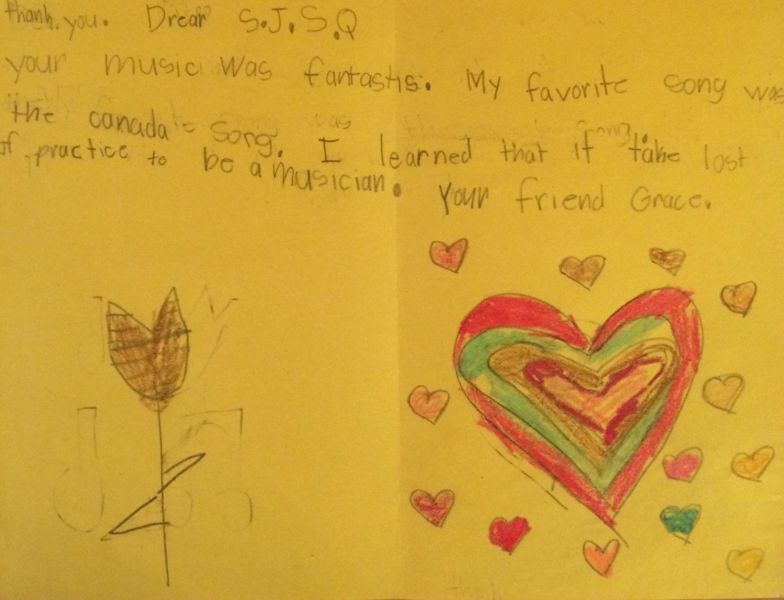 thank you. Drear S.J.S.Q
your music was fantastis. My favorite song was
the canada song. I learned that if take lost
of practice to be a musician. Your friend Grace.